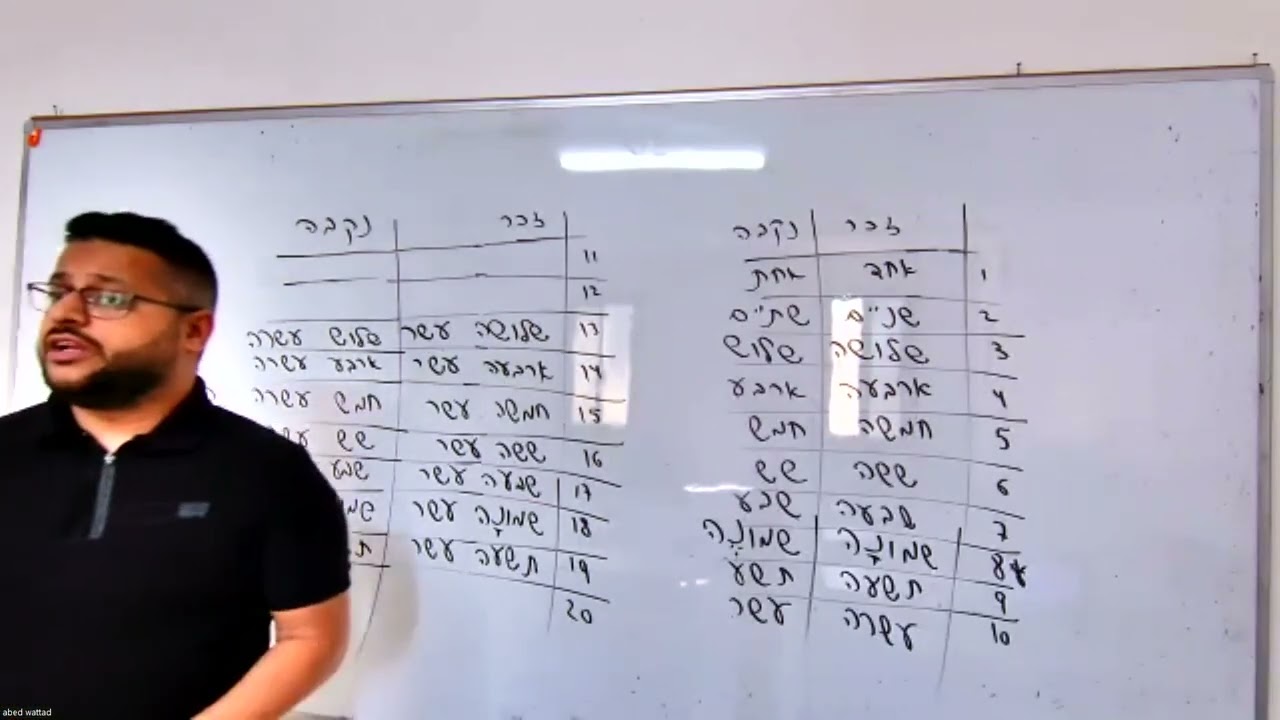 זכר נקבה
1 אחד אחת
2 שניים שתיים
3 שלושה שלוש
4 ארבעה ארבע
5 חמשה חמש
6 ששה שש
7 שבעה שבע
8* שמונָה שמונֶה
9 תשעה תשע
10 עשרה עשר
זכר נקבה
11
12
13 שלושה עשר שלוש עשרה
14 ארבעה עשר ארבע עשרה
15 חמשה עשר חמש עשרה
16 ששה עשר שש
17 שבעה עשר שבע
18 שמונָה עשר
19 תשעה עשר
20
abed wattad